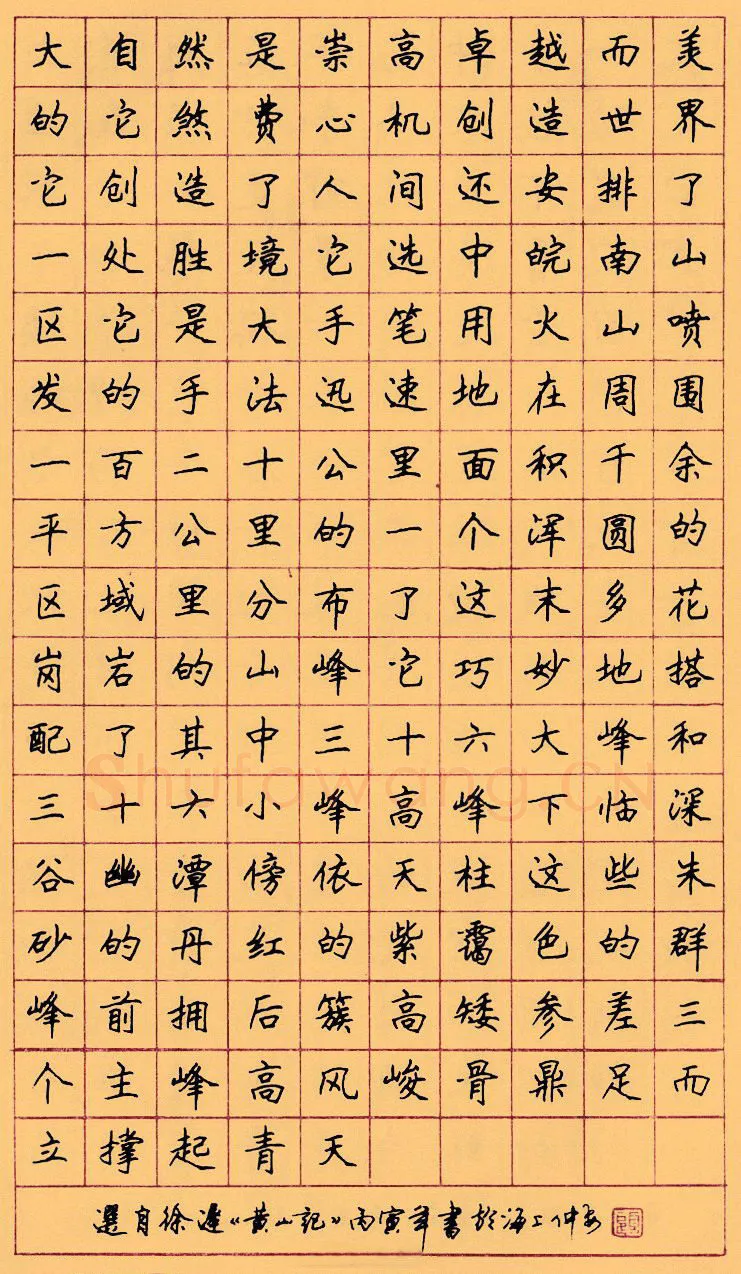 大自然是崇高卓越而美
的它煞费心机创造世界
它创造了人间还安排了
一处胜境它选中皖南山
区它是大手笔用火山喷
发的手法迅速地在周围
一百二十公里面积千余
平方公里的一个浑圆的
区域里分布了这末多花
岗岩的山峰它巧妙地搭
配了其中三十六大峰和
三十六小峰高峰下临深
谷幽潭傍依天柱这些朱
砂的丹红的紫霭色的群
峰前拥后簇高矮参差三
个主峰高风峻骨鼎足而
立撑起青天
shufawang.CN
選自徐遲《黄山記》丙寅年書於海上仲安